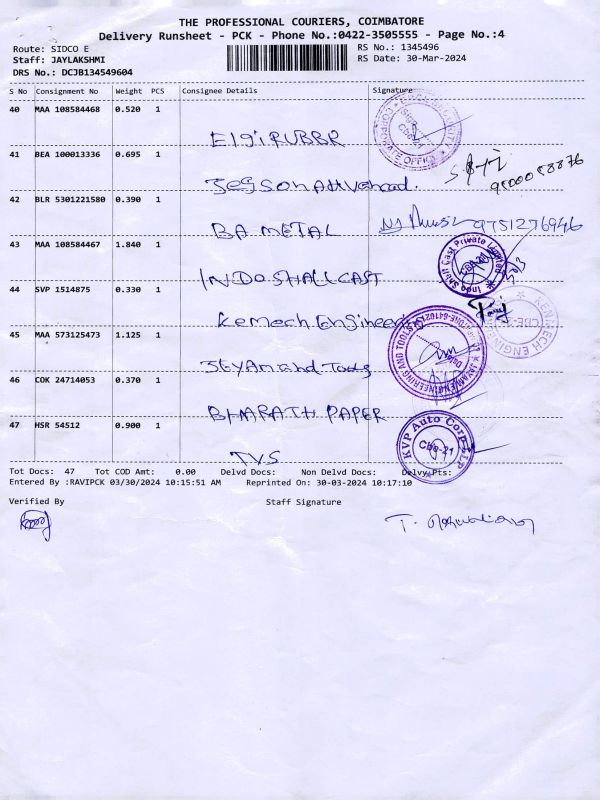 THE PROFESSIONAL COURIERS, COIMBATORE
Delivery Runsheet - PCK - Phone No.:0422-3505555 - Page No.:4
Route: SIDCO E
RS No.: 1345496
Staff: JAYLAKSHMI
RS Date: 30-Mar-2024
DRS No.: DCJB134549604
S No Consignment No Weight PCS Consignee Details Signature
40 MAA 108584468 0.520 1
Elgi RUBBR
41 BEA 100013336 0.695 1
42 BLR 5301221580 0.390 1
BA METAL 9751276946
43 MAA 108584467 1.840 1
INDOSHALLCAST
Indo Shell Cast Private Limited
44 SVP 1514875 0.330 1
Kemech Engineering
45 MAA 573125473 1.125 1
Jeyanand Tools
46 COK 24714053 0.370 1
BHARATH PAPER
47 HSR 54512 0.900 1
KVP Auto Corp LLP
Cbe-21
TVS
Tot Docs: 47 Tot COD Amt: 0.00 Delvd Docs: Non Delvd Docs: Delvy Pts:
Entered By :RAVIPCK 03/30/2024 10:15:51 AM Reprinted On: 30-03-2024 10:17:10
Verified By Staff Signature